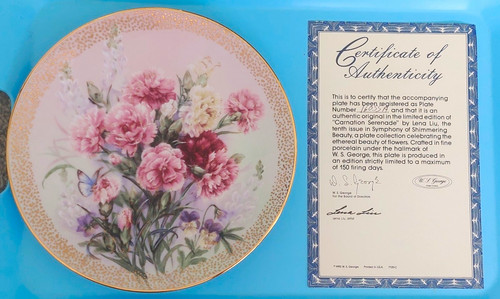 Certificate of
Authenticity
This is to certify that the accompanying
plate has been registered as Plate
Number and that it is an
authentic original in the limited edition of
"Carnation Serenade" by Lena Liu, the
tenth issue in Symphony of Shimmering
Beauty, a plate collection celebrating the
ethereal beauty of flowers. Crafted in fine
porcelain under the hallmark of
W. S. George, this plate is produced in
an edition strictly limited to a maximum
of 150 firing days.
W. S. George
W. S. George
For the Board of Directors
Lena Liu
Lena Liu, Artist